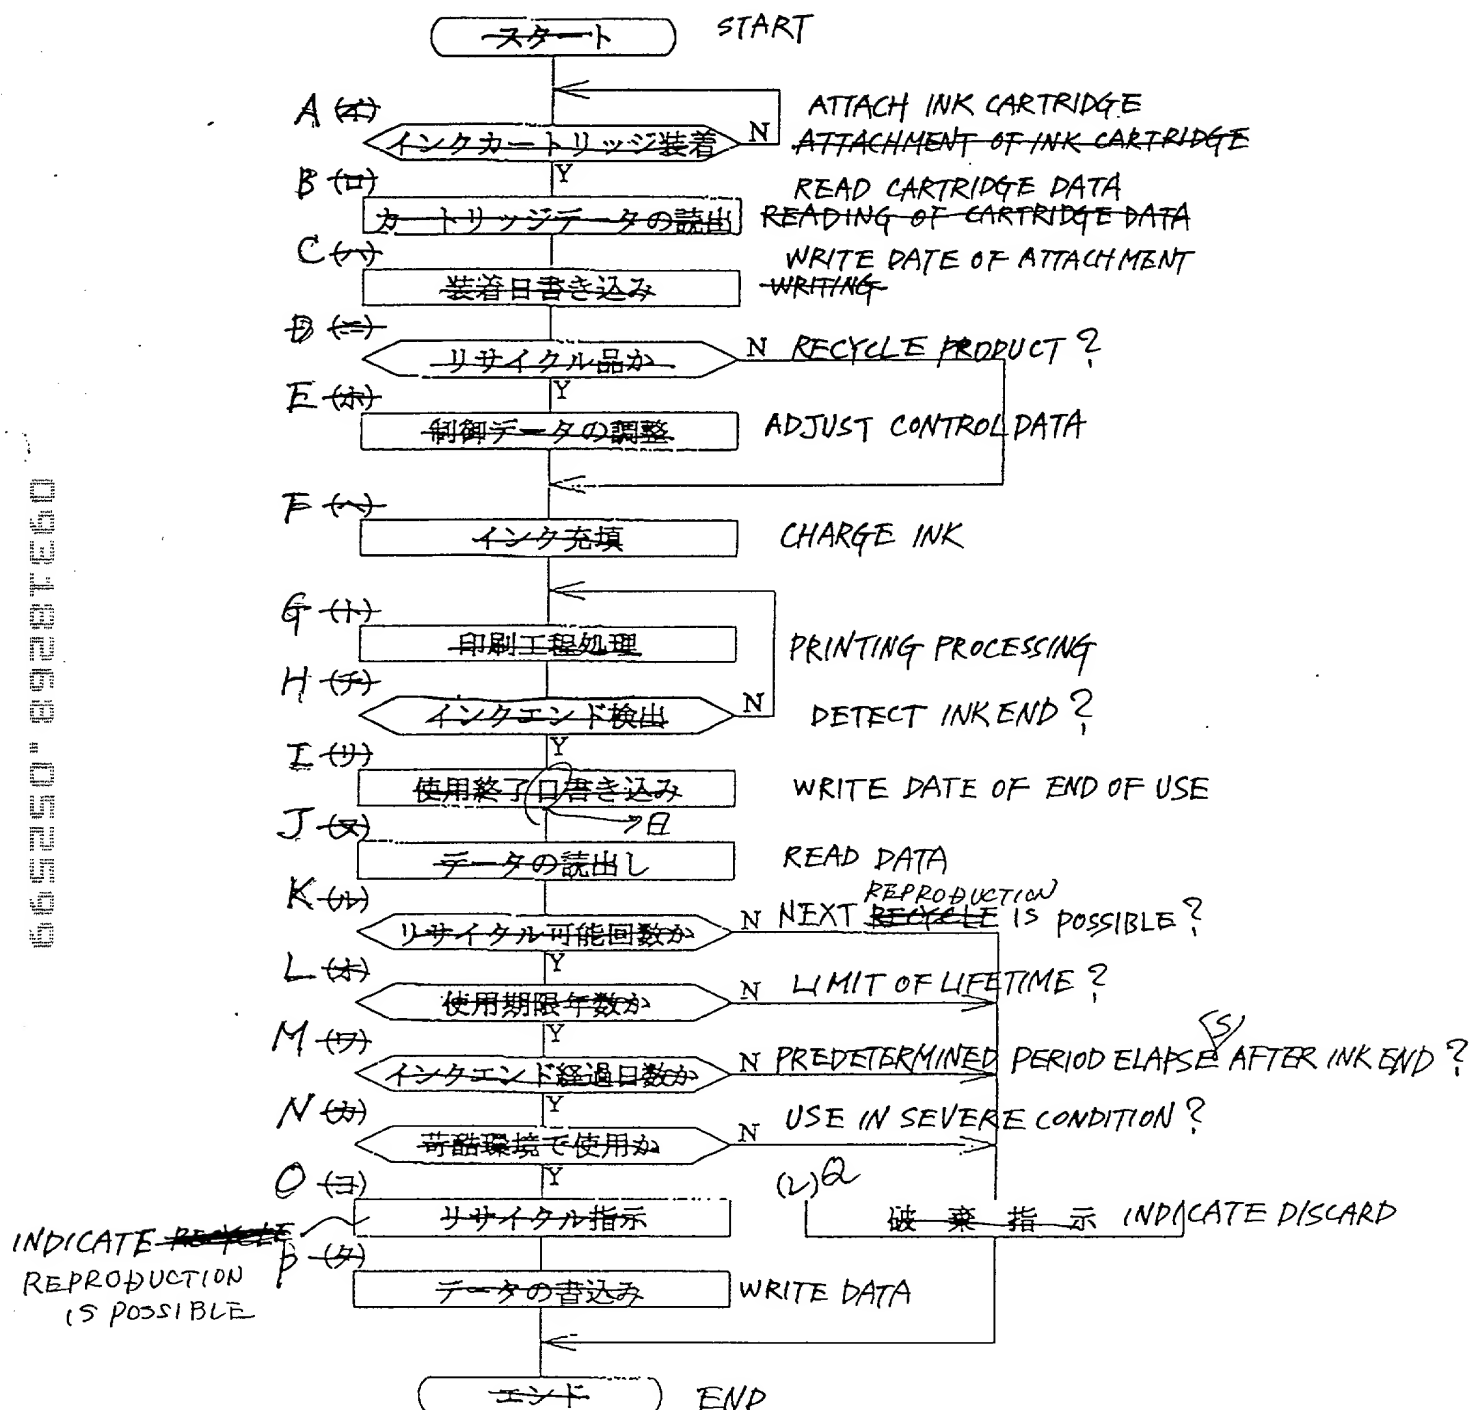 スタート START
A (イ) ATTACH INK CARTRIDGE
インクカートリッジ装着 N ATTACHMENT OF INK CARTRIDGE
Y
B (ロ) READ CARTRIDGE DATA
カートリッジデータの読出 READING OF CARTRIDGE DATA
C (ハ) WRITE DATE OF ATTACHMENT
装着日書き込み WRITING
D (ニ)
リサイクル品か N RECYCLE PRODUCT ?
Y
E (ホ)
制御データの調整 ADJUST CONTROL DATA
F (ヘ)
インク充填 CHARGE INK
G (ト)
印刷工程処理 PRINTING PROCESSING
H (チ)
インクエンド検出 N DETECT INK END ?
Y
I (リ)
使用終了日書き込み WRITE DATE OF END OF USE
日
J (ヌ)
データの読出し READ DATA
K (ル) REPRODUCTION
リサイクル可能回数か N NEXT RECYCLE IS POSSIBLE ?
Y
L (オ)
使用期限年数か N LIMIT OF LIFETIME ?
Y
M (ワ) (S)
インクエンド経過日数か N PREDETERMINED PERIOD ELAPSE AFTER INK END ?
Y
N (カ)
苛酷環境で使用か N USE IN SEVERE CONDITION ?
Y
O (ヨ) (レ) Q
リサイクル指示 破棄指示 INDICATE DISCARD
INDICATE RECYCLE
REPRODUCTION
IS POSSIBLE
P (タ)
データの書込み WRITE DATA
エンド END
09318268.052599